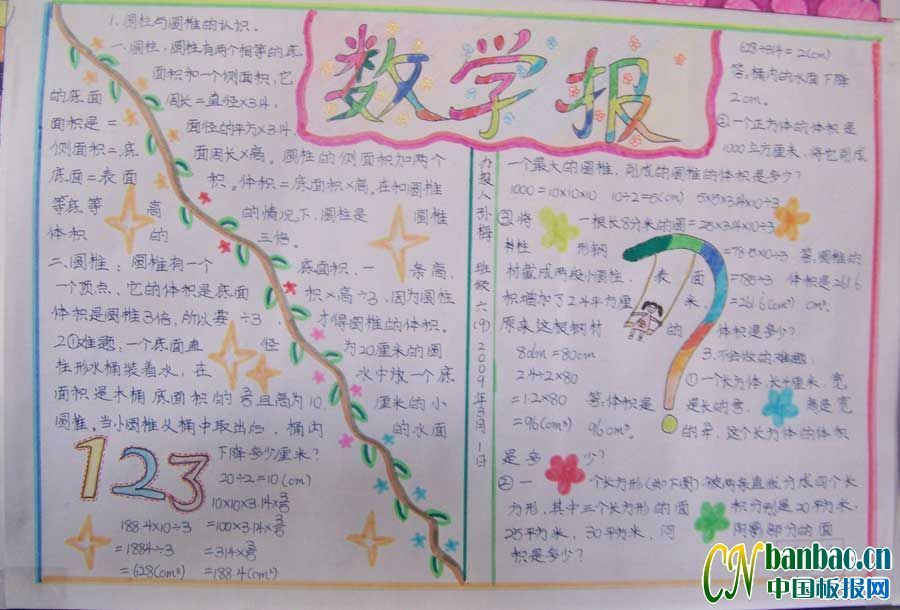 数学报
1.圆柱与圆椎的认识。
一.圆柱:圆柱有两个相等的底
面积和一个侧面积,它
的底面 周长=直径×3.14,
面积是= 面径的平方×3.14,
侧面积=底 面周长×高。圆柱的侧面积加两个
底面=表面 积。体积=底面积×高。在和圆椎
等底等 高 的情况下,圆柱是 圆椎
体积 的 三倍。
二.圆椎:圆椎有一个 底面积,一 条高,
一个顶点,它的体积是底面 积×高÷3,因为圆柱
体积是圆椎3倍,所以要÷3, 才得圆椎的体积。
2①难题:一个底面直 径 为20厘米的圆
柱形水桶装着水,在 水中放一个底
面积是木桶底面积的3/5且高为10 厘米的小
圆椎,当小圆椎从桶中取出后,桶内 的水面
下降多少厘米?
123
20÷2=10(cm)
10×10×3.14×3/5
=100×3.14×3/5
=314×3/5
=188.4(cm²)
188.4×10÷3
=1884÷3
=628(cm³)
办报人 孙梅 班级 六(9) 2009年3月1日
628÷314=2(cm)
答:桶内的水面下降
2cm。
②一个正方体的体积是
1000立方厘米,将它削成
一个最大的圆椎,削成的圆椎的体积是多少?
1000=10×10×10 10÷2=5(cm) 5×5×3.14×10÷3
=25×3.14×10÷3
=78.5×10÷3
=785÷3
≈261.6(cm³)
答:圆椎的
体积是261.6
cm³。
③将 一根长8分米的圆
柱 形钢
材截成两段小圆柱, 表 面
积增加了24平方厘 米
原来这根钢材 的 体积是多少?
8dm=80cm
24÷2×80
=12×80
=960(cm³)
答:体积是
960cm³。
3.不会做的难题:
①一个长方体,长4厘米,宽
是长的 ,高是宽
的 ,这个长方体的体积
是多 少?
②一 个长方形(如下图)被两条直线分成四个长
方形,其中三个长方形的面 积分别是20平方米,
25平方米,30平方米,问 阴影部分的面
积是多少?
CN banbao.cn
中国板报网